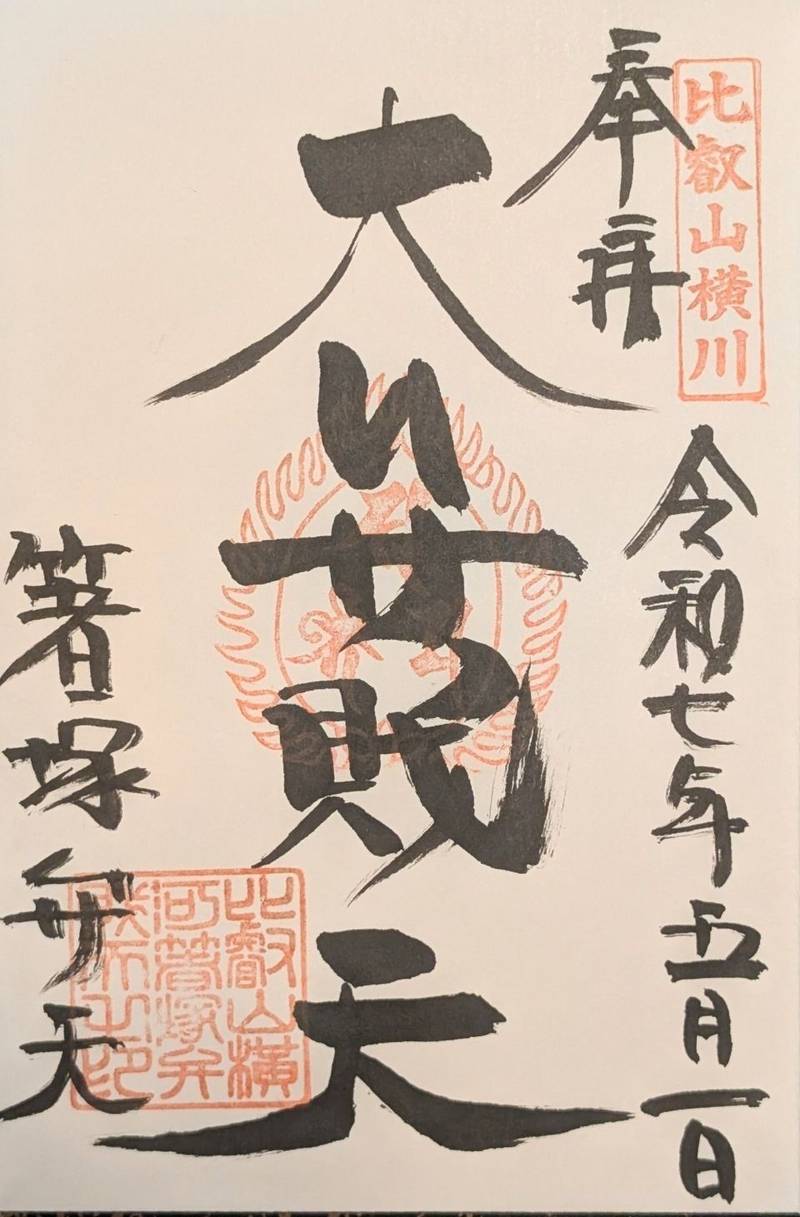 比叡山横川
奉拝
令和七年五月一日
大弁財天
箸塚弁天
比叡山横
河箸塚弁